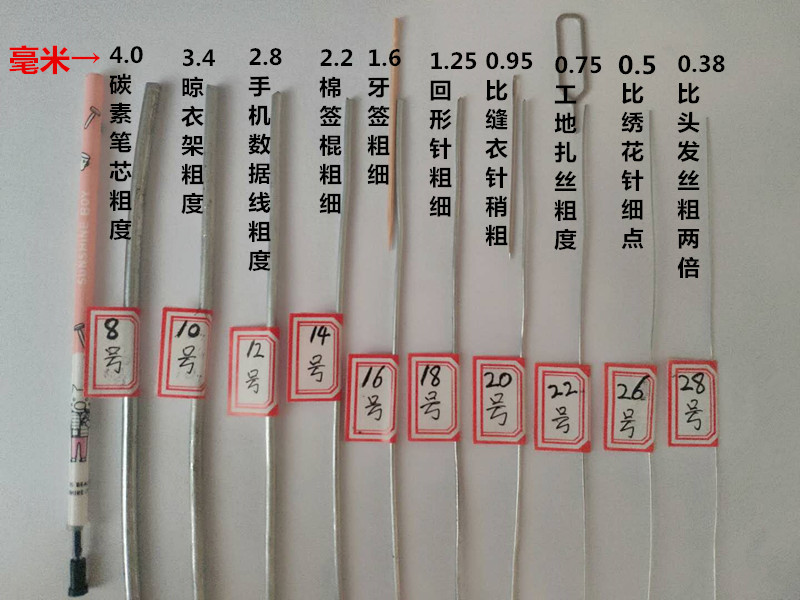 毫米→
4.0
碳素笔芯粗度
3.4
晾衣架粗度
2.8
手机数据线粗度
2.2
棉签棍粗细
1.6
牙签粗细
1.25
回形针粗细
0.95
比缝衣针稍粗
0.75
工地扎丝粗度
0.5
比绣花针细点
0.38
比头发丝粗两倍
8号
10号
12号
14号
16号
18号
20号
22号
26号
28号